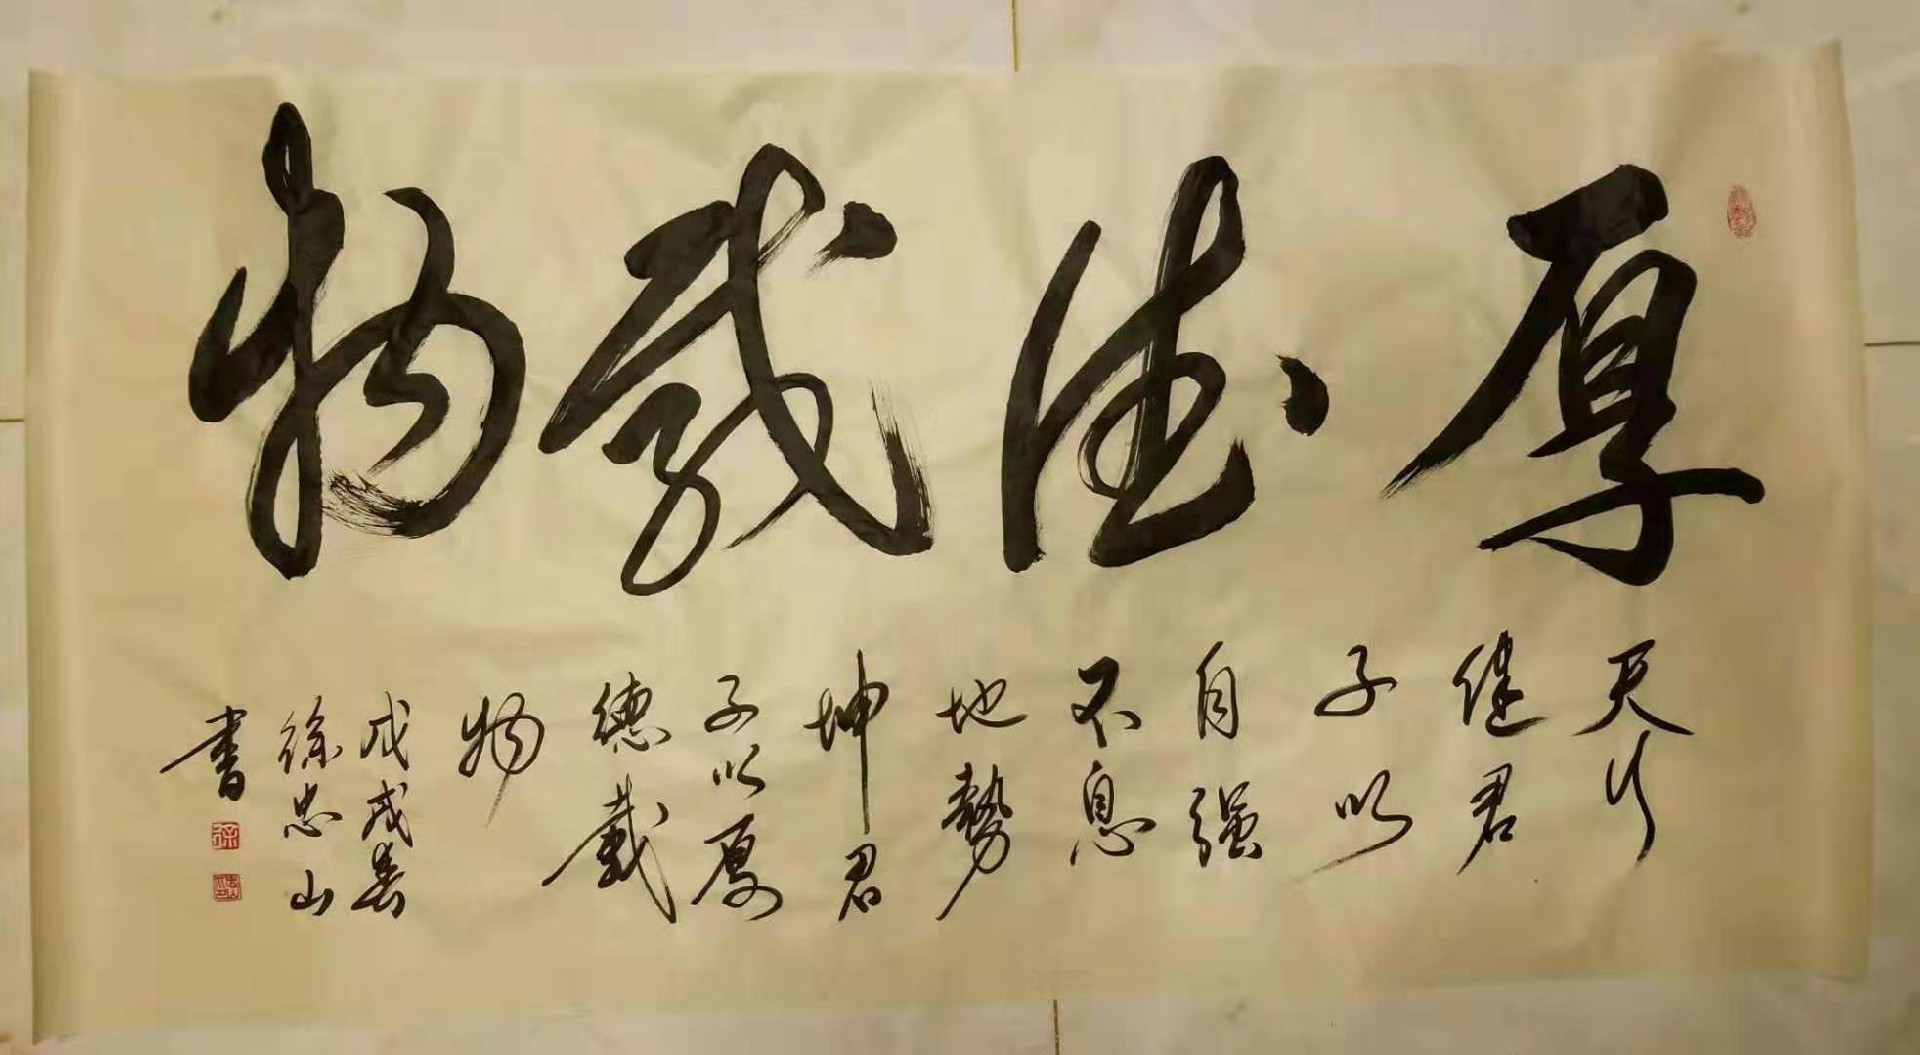 厚德载物
天行
健君
子以
自强
不息
地勢
坤君
子以厚
德載
物
戊戌春
徐忠山
書